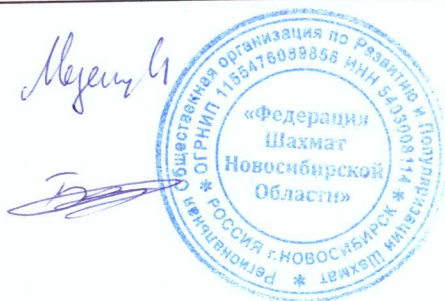 Региональная Общественная организация по Развитию и Популяризации Шахмат *
ОГРНИП 1155476089856 ИНН 5403008114 *
РОССИЯ г.НОВОСИБИРСК *
«Федерация
Шахмат
Новосибирской
Области»